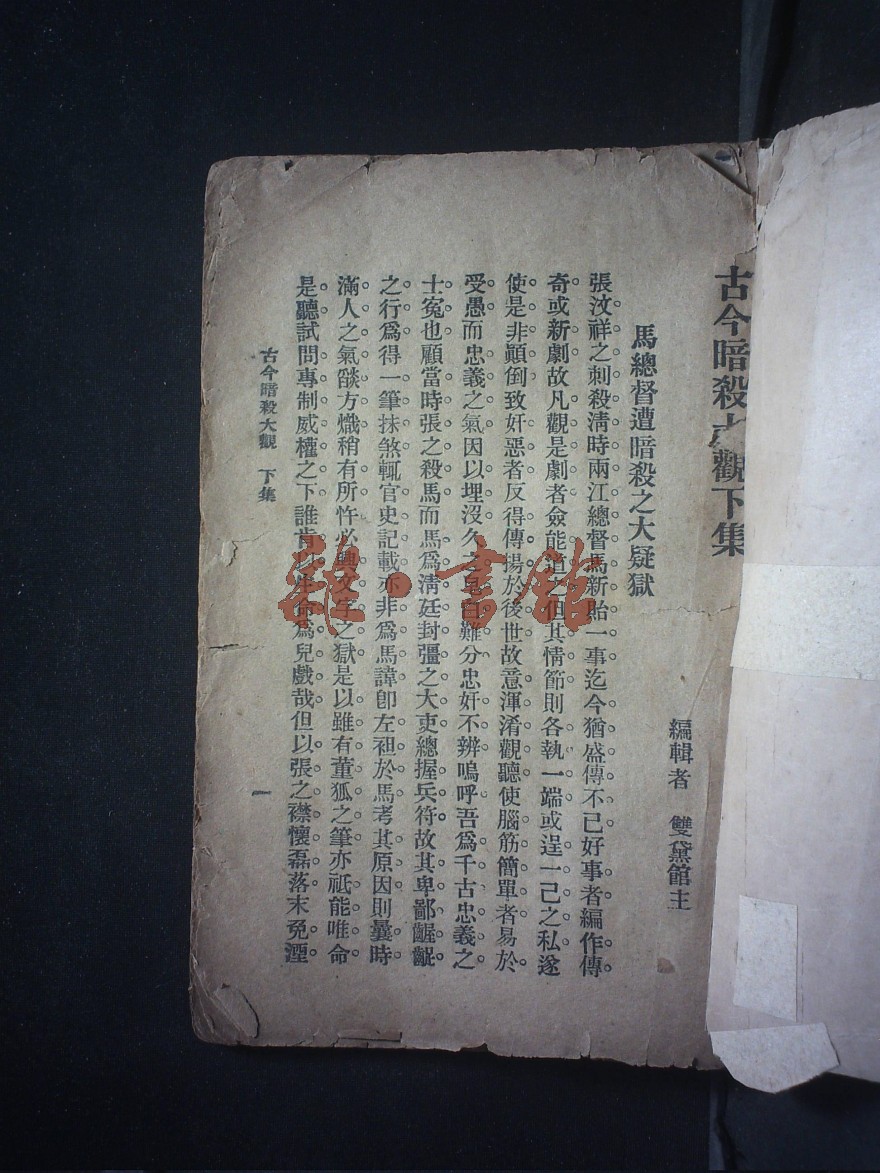 古今暗殺大觀下集
編輯者　雙黛館主
馬總督遭暗殺之大疑獄
張汶祥之刺殺淸時兩江總督馬新貽一事迄今猶盛傳不已好事者編作傳
奇或新劇故凡觀是劇者僉能道之但其情節則各執一端或逞一己之私遂
使是非顚倒致奸惡者反得傳揚於後世故意渾淆觀聽使腦筋簡單者易於
受愚而忠義之氣因以埋沒久之難分忠奸不辨嗚呼吾爲千古忠義之
士冤也顧當時張之殺馬而馬爲淸廷封彊之大吏總握兵符故其卑鄙齷齪
之行爲得一筆抹煞輒官史記載亦非爲馬諱卽左袒於馬考其原因則曩時
滿人之氣燄方熾稍有所忤必興文字之獄是以雖有董狐之筆亦祇能唯命
是聽試問專制威權之下誰肯以生命爲兒戲哉但以張之襟懷磊落末免湮
古今暗殺大觀　下集
一
雜·書館